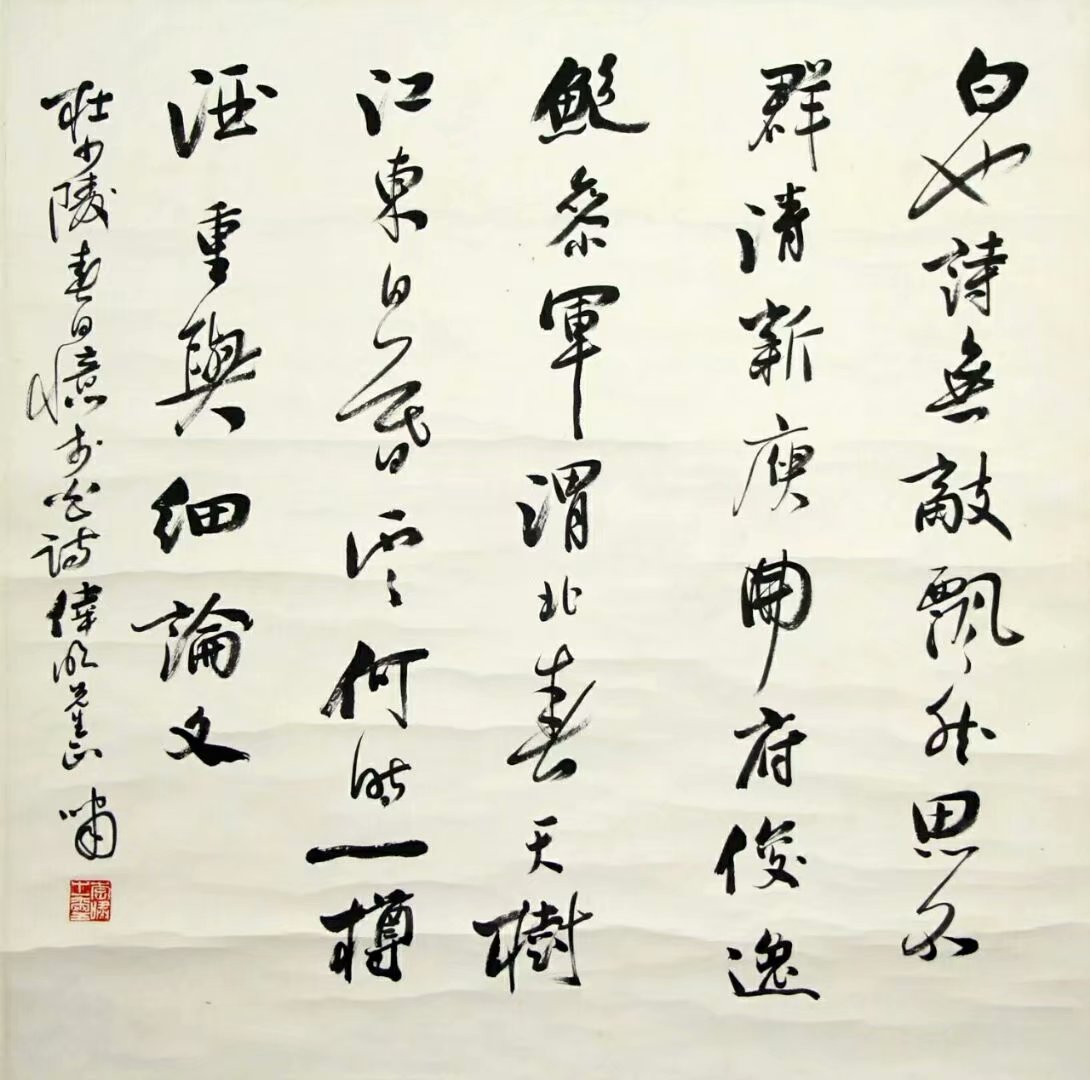 白也詩無敵飄然思不
群清新庾開府俊逸
鮑參軍渭北春天樹
江東日暮雲何時一樽
酒重與細論文
杜少陵春日憶李白詩偉明先生正 嘯